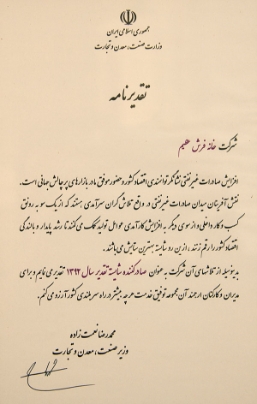 جمهوری اسلامی ایران
وزارت صنعت، معدن و تجارت
تقدیرنامه
شرکت خانه فرش عظیم
افزایش صادرات غیرنفتی نشانگر توانمندی اقتصاد کشور و حضور موفق ما در بازارهای پرچالش جهانی است.
نقش آفرینان میدان صادرات غیرنفتی در واقع تلاش گران سرآمدی هستند که از یک سو به رونق
کسب و کار داخلی و از سوی دیگر به افزایش کارآمدی عوامل تولید کمک می کنند تا رشد پایدار و بالندگی
اقتصاد کشور را رقم زنند، از این رو شایسته بهترین ستایش می باشند.
بدینوسیله از تلاشهای آن شرکت به عنوان صادرکننده شایسته تقدیر سال ۱۳۹۲ تقدیر می نمایم و برای
مدیران و کارکنان ارجمند آن مجموعه توفیق خدمت هر چه بیشتر در راه سربلندی کشور آرزو می کنم.
محمدرضا نعمت زاده
وزیر صنعت، معدن و تجارت